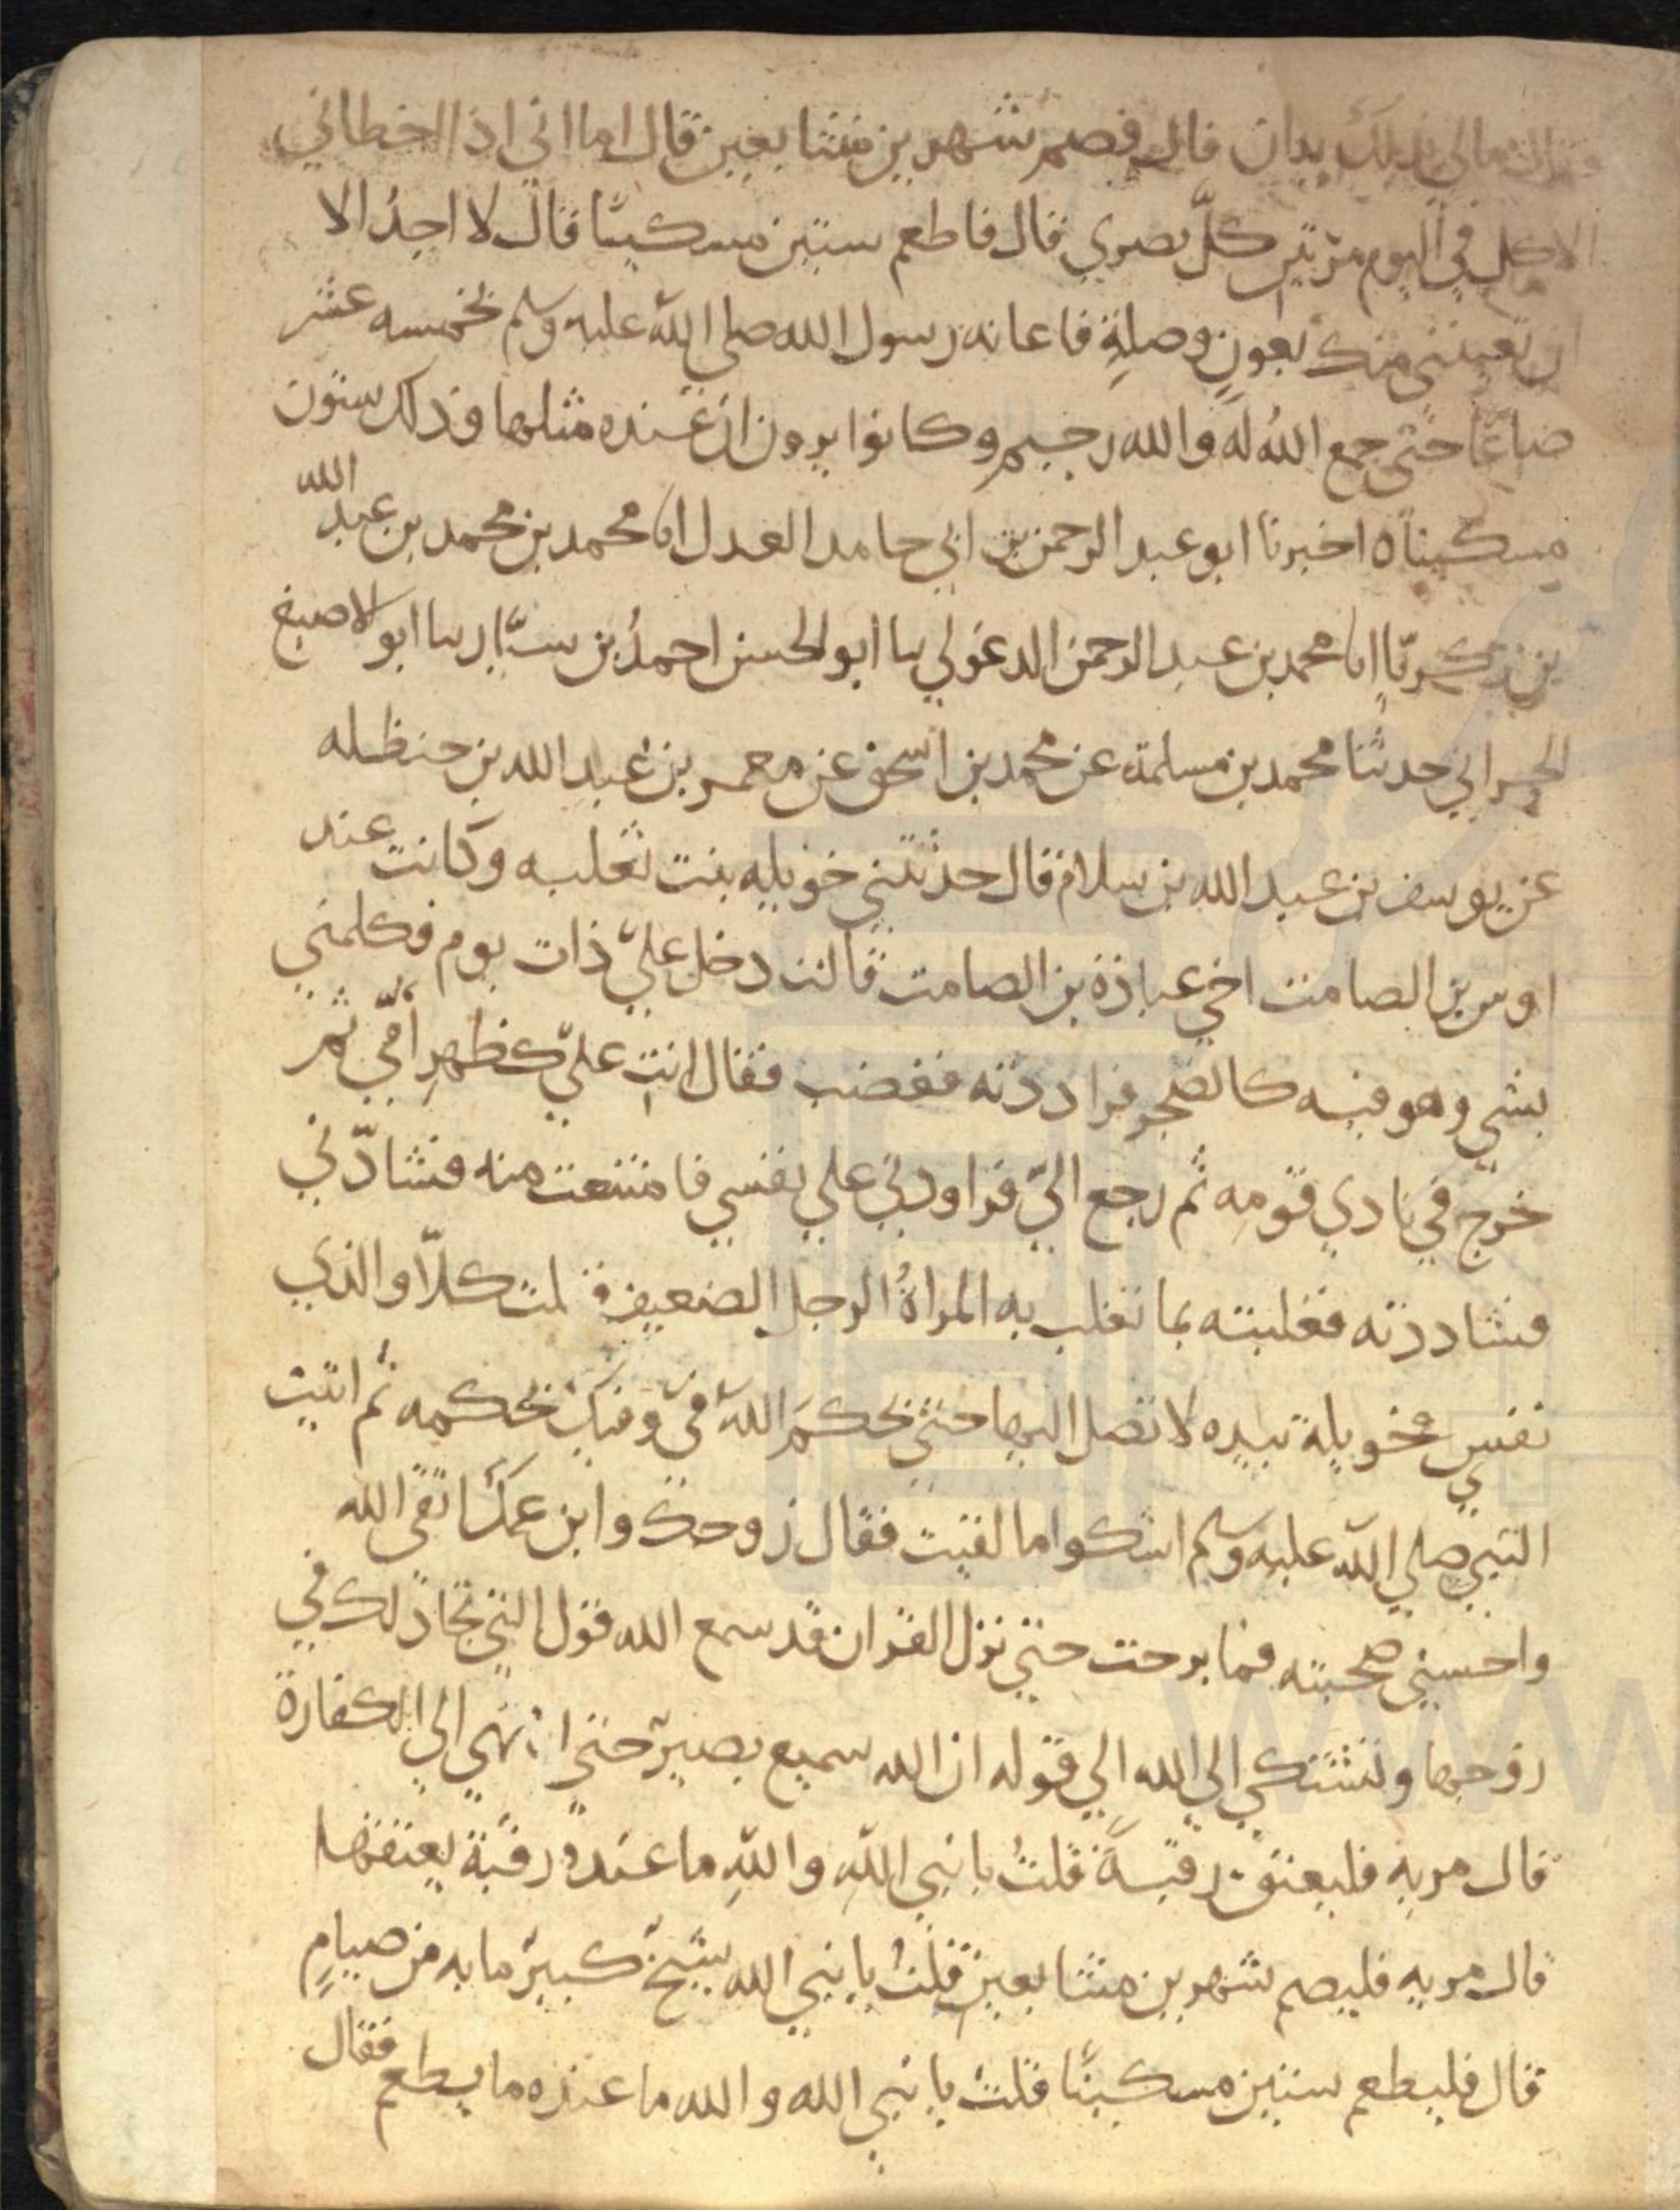 مالي بذلك يدان قال فصم شهرين متتابعين قال اما اني اذا اخطاني
الاكل في اليوم مرتين كلّ بصري قال فاطعم ستين مسكينا قال لا اجدُ الا
ان تعينني منك بعونٍ وصلةٍ فاعانه رسول الله صلى الله عليه وسلم بخمسه عشر
صاعًا حتى جمع اللهُ له والله رحيم وكانوا يرون ان عنده مثلها وذلك ستون
مسكينا ه اخبرنا ابو عبد الرحمن بن ابي حامد العدل انا محمد بن محمد بن عبد الله
بن زكريّا انا محمد بن عبد الرحمن الدغولي سا ابو الحسن احمدُ بن سيّار سا ابو الاصبغ
الحراني حدثنا محمد بن مسلمة عن محمد بن اسحق عن معمر بن عبد الله بن حنظله
عن يوسف بن عبد الله بن سلام قال حدثتني خويله بنت ثعلبه وكانت عند
اوس بن الصامت اخي عبادة بن الصامت قالت دخل عليّ ذات يوم فكلمني
بشي وهو فيه كالضجر فراددته فغضب فقال انتِ عليّ كظهرِ أمّي ثم
خرج في نادي قومه ثم رجع اليّ فراودني علي نفسي فامتنعت منه فشادّني
فشاددته فغلبته بما تغلب به المراةُ الرجل الضعيف فقلت كلّا والذي
نفس خويلة بيده لا تصل اليها حتي يحكمَ اللهُ فيّ وفيك بحكمه ثم اتيت
النبي صلي الله عليه وسلم اشكوا ما لقيت فقال زوجك وابن عمك اتقي الله
واحسني صحبته فما برحت حتي نزل القران قد سمع الله قول التي تجادلك في
زوجها وتشتكي الي الله الي قوله ان الله سميع بصير حتي انتهي الي الكفارة
قال مريه فليعتق رقبةً قلتُ يا نبي اللهِ واللهِ ما عنده رقبة يعتقها
قال مريه فليصم شهرين متتابعين قلتُ يا نبي الله شيخ كبير ما به من صيامٍ
قال فليطعم ستين مسكينًا قلتُ يا نبي الله والله ما عنده ما يطعم فقال